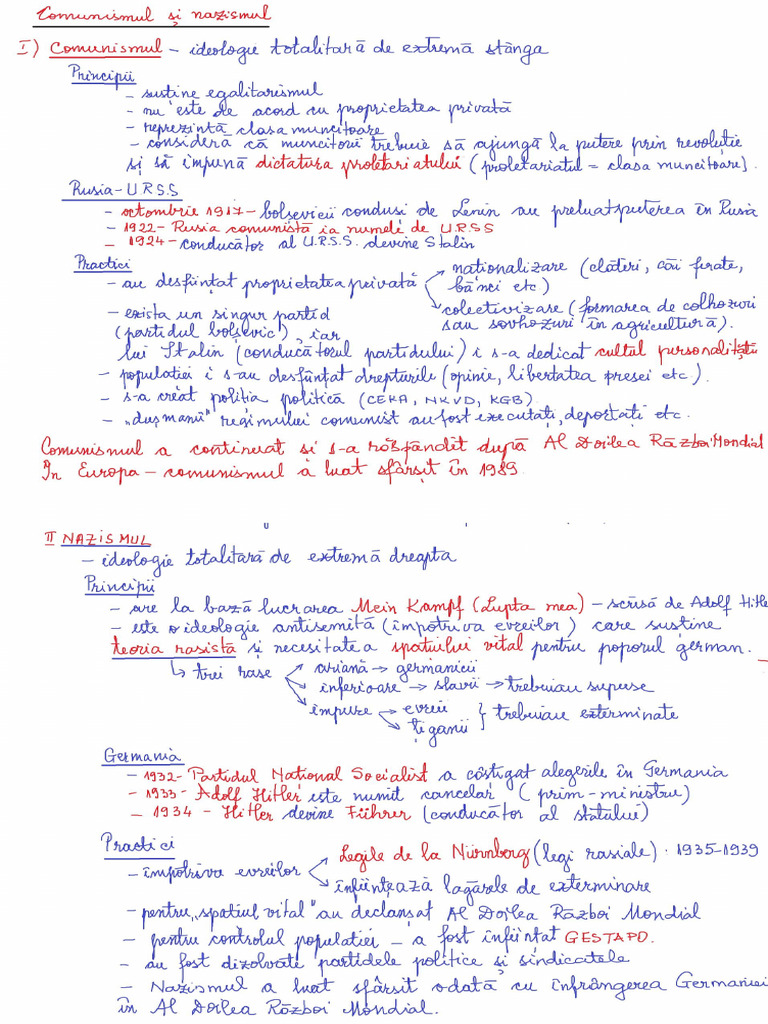 Comunismul și nazismul
I) Comunismul – ideologie totalitară de extremă stânga
Principii
– susține egalitarismul
– nu este de acord cu proprietatea privată
– reprezintă clasa muncitoare
– consideră că muncitorii trebuie să ajungă la putere prin revoluție
și să impună dictatura proletariatului (proletariatul = clasa muncitoare).
Rusia – U.R.S.S
– octombrie 1917 – bolșevicii conduși de Lenin au preluat puterea în Rusia
– 1922 – Rusia comunistă ia numele de U.R.S.S
– 1924 – conducător al U.R.S.S. devine Stalin
Practici
– au desființat proprietatea privată
nationalizare (clăteri, căi ferate,
bănci etc)
colectivizare (formarea de colhozuri
sau sovhozuri în agricultură).
– exista un singur partid
(partidul bolșevic), iar
lui Stalin (conducătorul partidului) i s-a dedicat cultul personalității
– populatiei i s-au desfințat drepturile (opinie, libertatea presei etc).
– s-a creat poliția politică (CEKA, NKVD, KGB).
– „dușmanii" regimului comunist au fost executați, deportați etc.
Comunismul a continuat si s-a răspândit după Al Doilea Război Mondial
În Europa – comunismul a luat sfârșit în 1989
II NAZISMUL
– ideologie totalitară de extremă dreapta
Principii
– are la bază lucrarea Mein Kampf (Lupta mea) – scrisă de Adolf Hitle
– este o ideologie antisemită (împotriva evreilor) care susține
teoria rasistă și necesitatea spatiului vital pentru poporul german.
trei rase
ariană → germanicii
inferioare → slavii → trebuiau supuse
impure → evreii
țiganii } trebuiau exterminate
Germania
– 1932 – Partidul National Socialist a câstigat alegerile în Germania
– 1933 – Adolf Hitler este numit cancelar (prim-ministru)
– 1934 – Hitler devine Führer (conducător al statului)
Practici
– împotriva evreilor
Legile de la Nürnberg (legi rasiale) · 1935-1939
înființează lagărele de exterminare
– pentru „spatiul vital" au declanșat Al Doilea Război Mondial
– pentru controlul populatiei – a fost înființat GESTAPO.
– au fost dizolvate partidele politice și sindicatele
– Nazismul a luat sfârsit odată cu înfrângerea Germaniei
în Al Doilea Război Mondial.